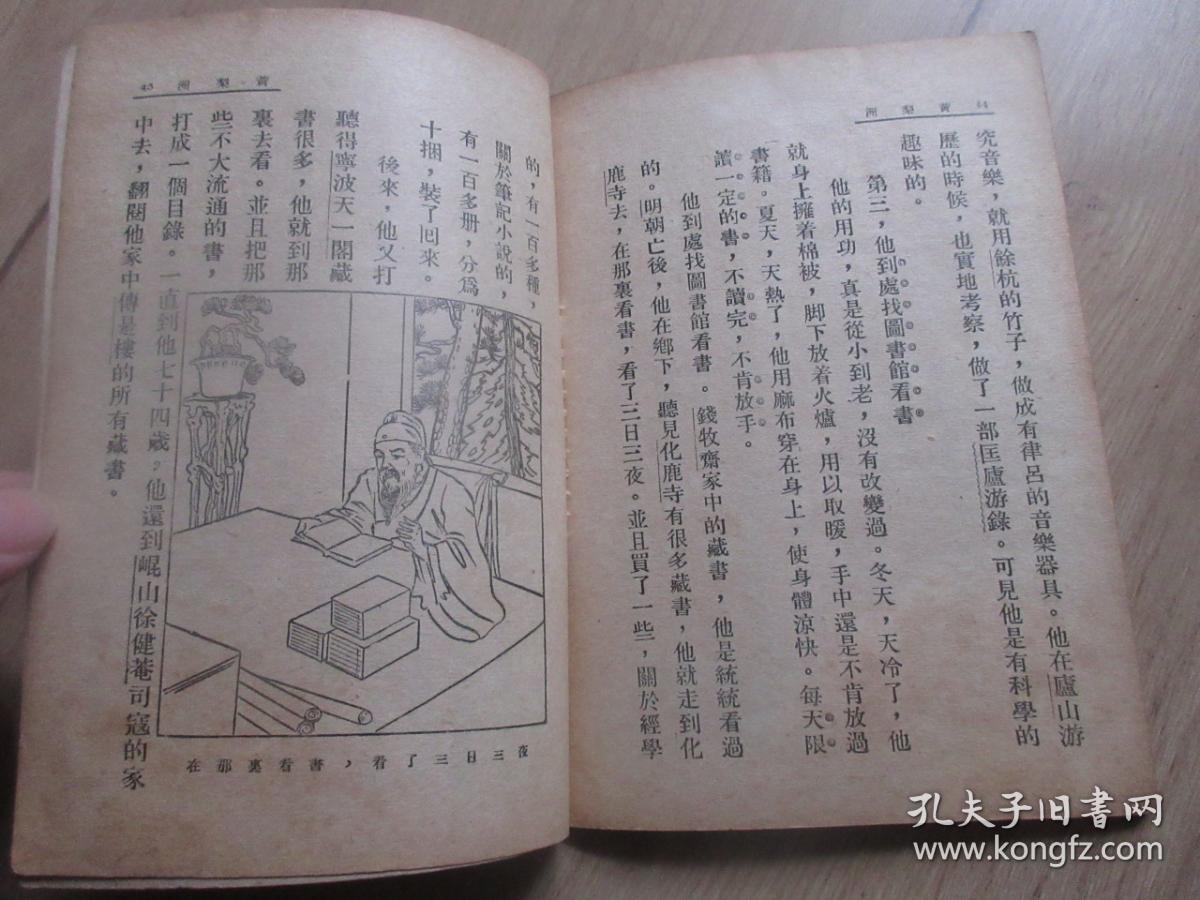 44 黃梨洲
究音樂，就用餘杭的竹子，做成有律呂的音樂器具。他在廬山游
歷的時候，也實地考察，做了一部匡廬游錄。可見他是有科學的
趣味的。
第三，他到處找圖書館看書
他的用功，真是從小到老，沒有改變過。冬天，天冷了，他
就身上擁着棉被，脚下放着火爐，用以取暖，手中還是不肯放過
書籍。夏天，天熱了，他用麻布穿在身上，使身體涼快。每天限
讀一定的書，不讀完，不肯放手。
他到處找圖書館看書。錢牧齋家中的藏書，他是統統看過
的。明朝亡後，他在鄉下，聽見化鹿寺有很多藏書，他就走到化
鹿寺去，在那裏看書，看了三日三夜。並且買了一些，關於經學
黃梨洲 45
的，有一百多種，
關於筆記小說的，
有一百多册，分爲
十捆，裝了囘來。
後來，他又打
聽得寧波天一閣藏
書很多，他就到那
裏去看。並且把那
些不大流通的書，
打成一個目錄。一直到他七十四歲，他還到崐山徐健菴司寇的家
中去，翻閱他家中傳是樓的所有藏書。
在那裏看書，看了三日三夜
孔夫子旧书网
www.kongfz.com